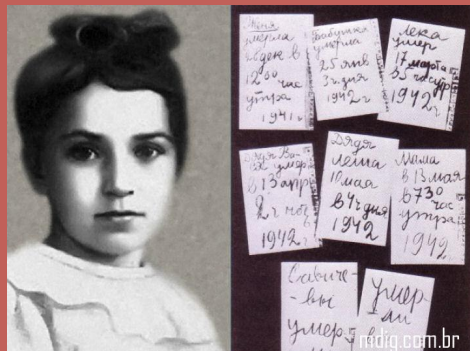 Женя
умерла
28 дек в
час
утра
1941 г
Бабушка
умерла
25 янв
3ч дня
1942 г
Лека
умер
17 марта
в 5 час утр
1942 г
Дядя Ва-
ся умер
в 13 апр
2 ч ноч
1942 г
Дядя
Леша
10 мая
в 4ч дня
1942
Мама
в 13 мая
в 7 30
час
утра
1942
Савиче-
-вы
умер
умер
-ли
mdig.com.br